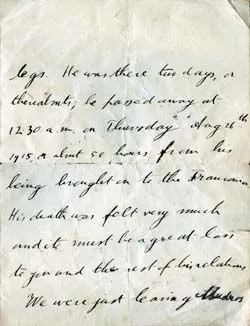 legs. He was there two days, or
thereabouts; he passed away at
12.30 a.m. on Thursday Aug 26th
1915, or about 50 hours from his
being brought on to the Franconia
His death was felt very much
and it must be a great loss
to you and the rest of his relations
We were just leaving Mudros